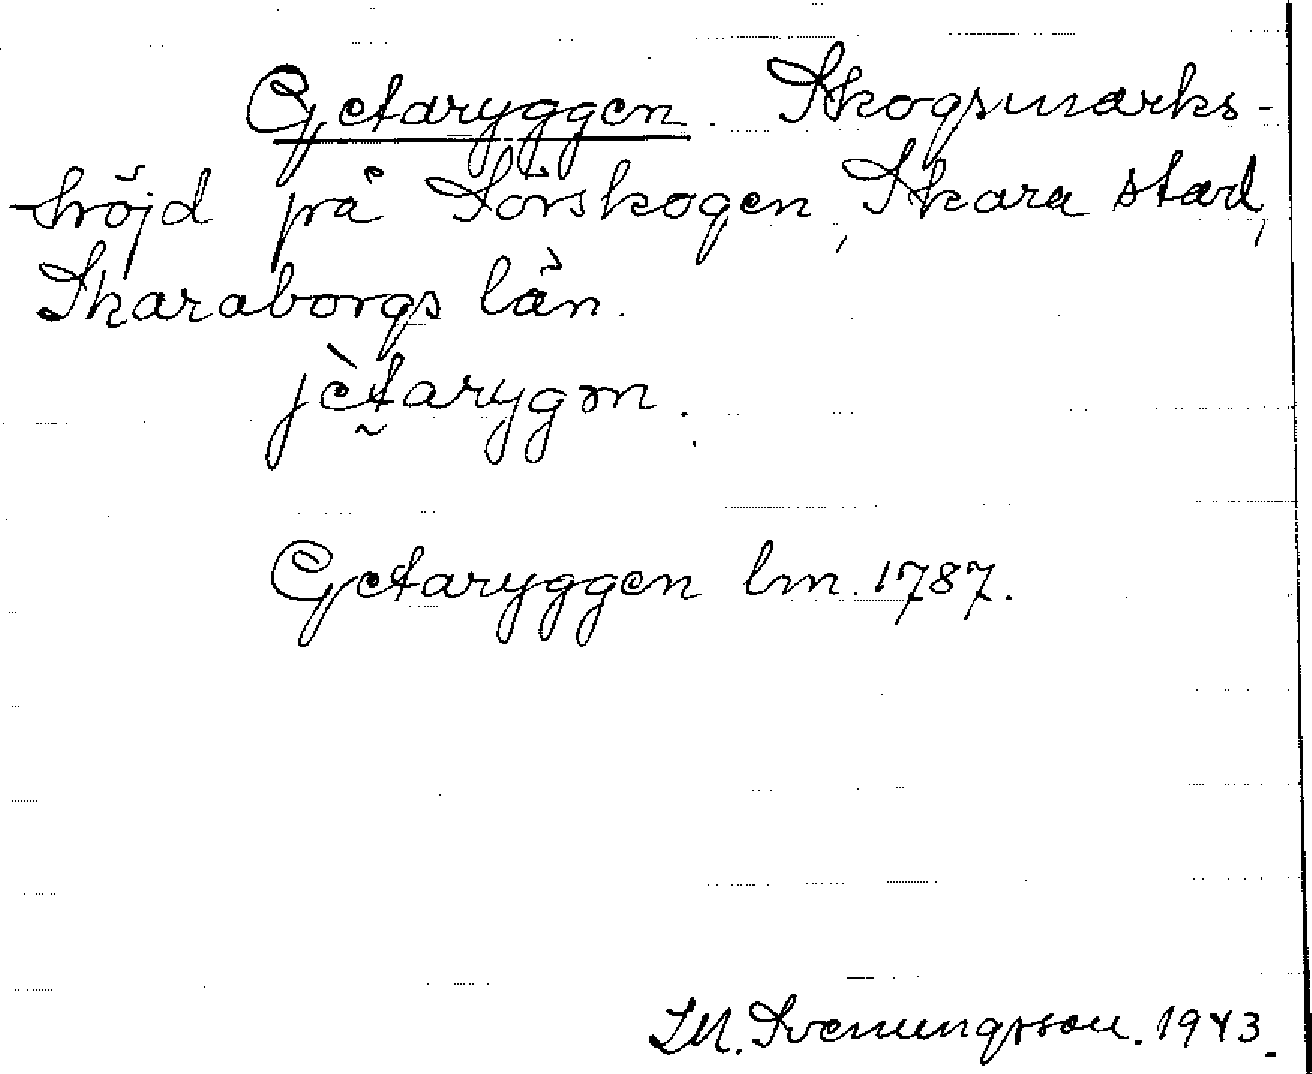 Getaryggen. Skogsmarks-
höjd på Sörskogen, Skara stad,
Skaraborgs län.
jètarygən.
Getaryggen lm. 1787.
Svenungsson. 1943.